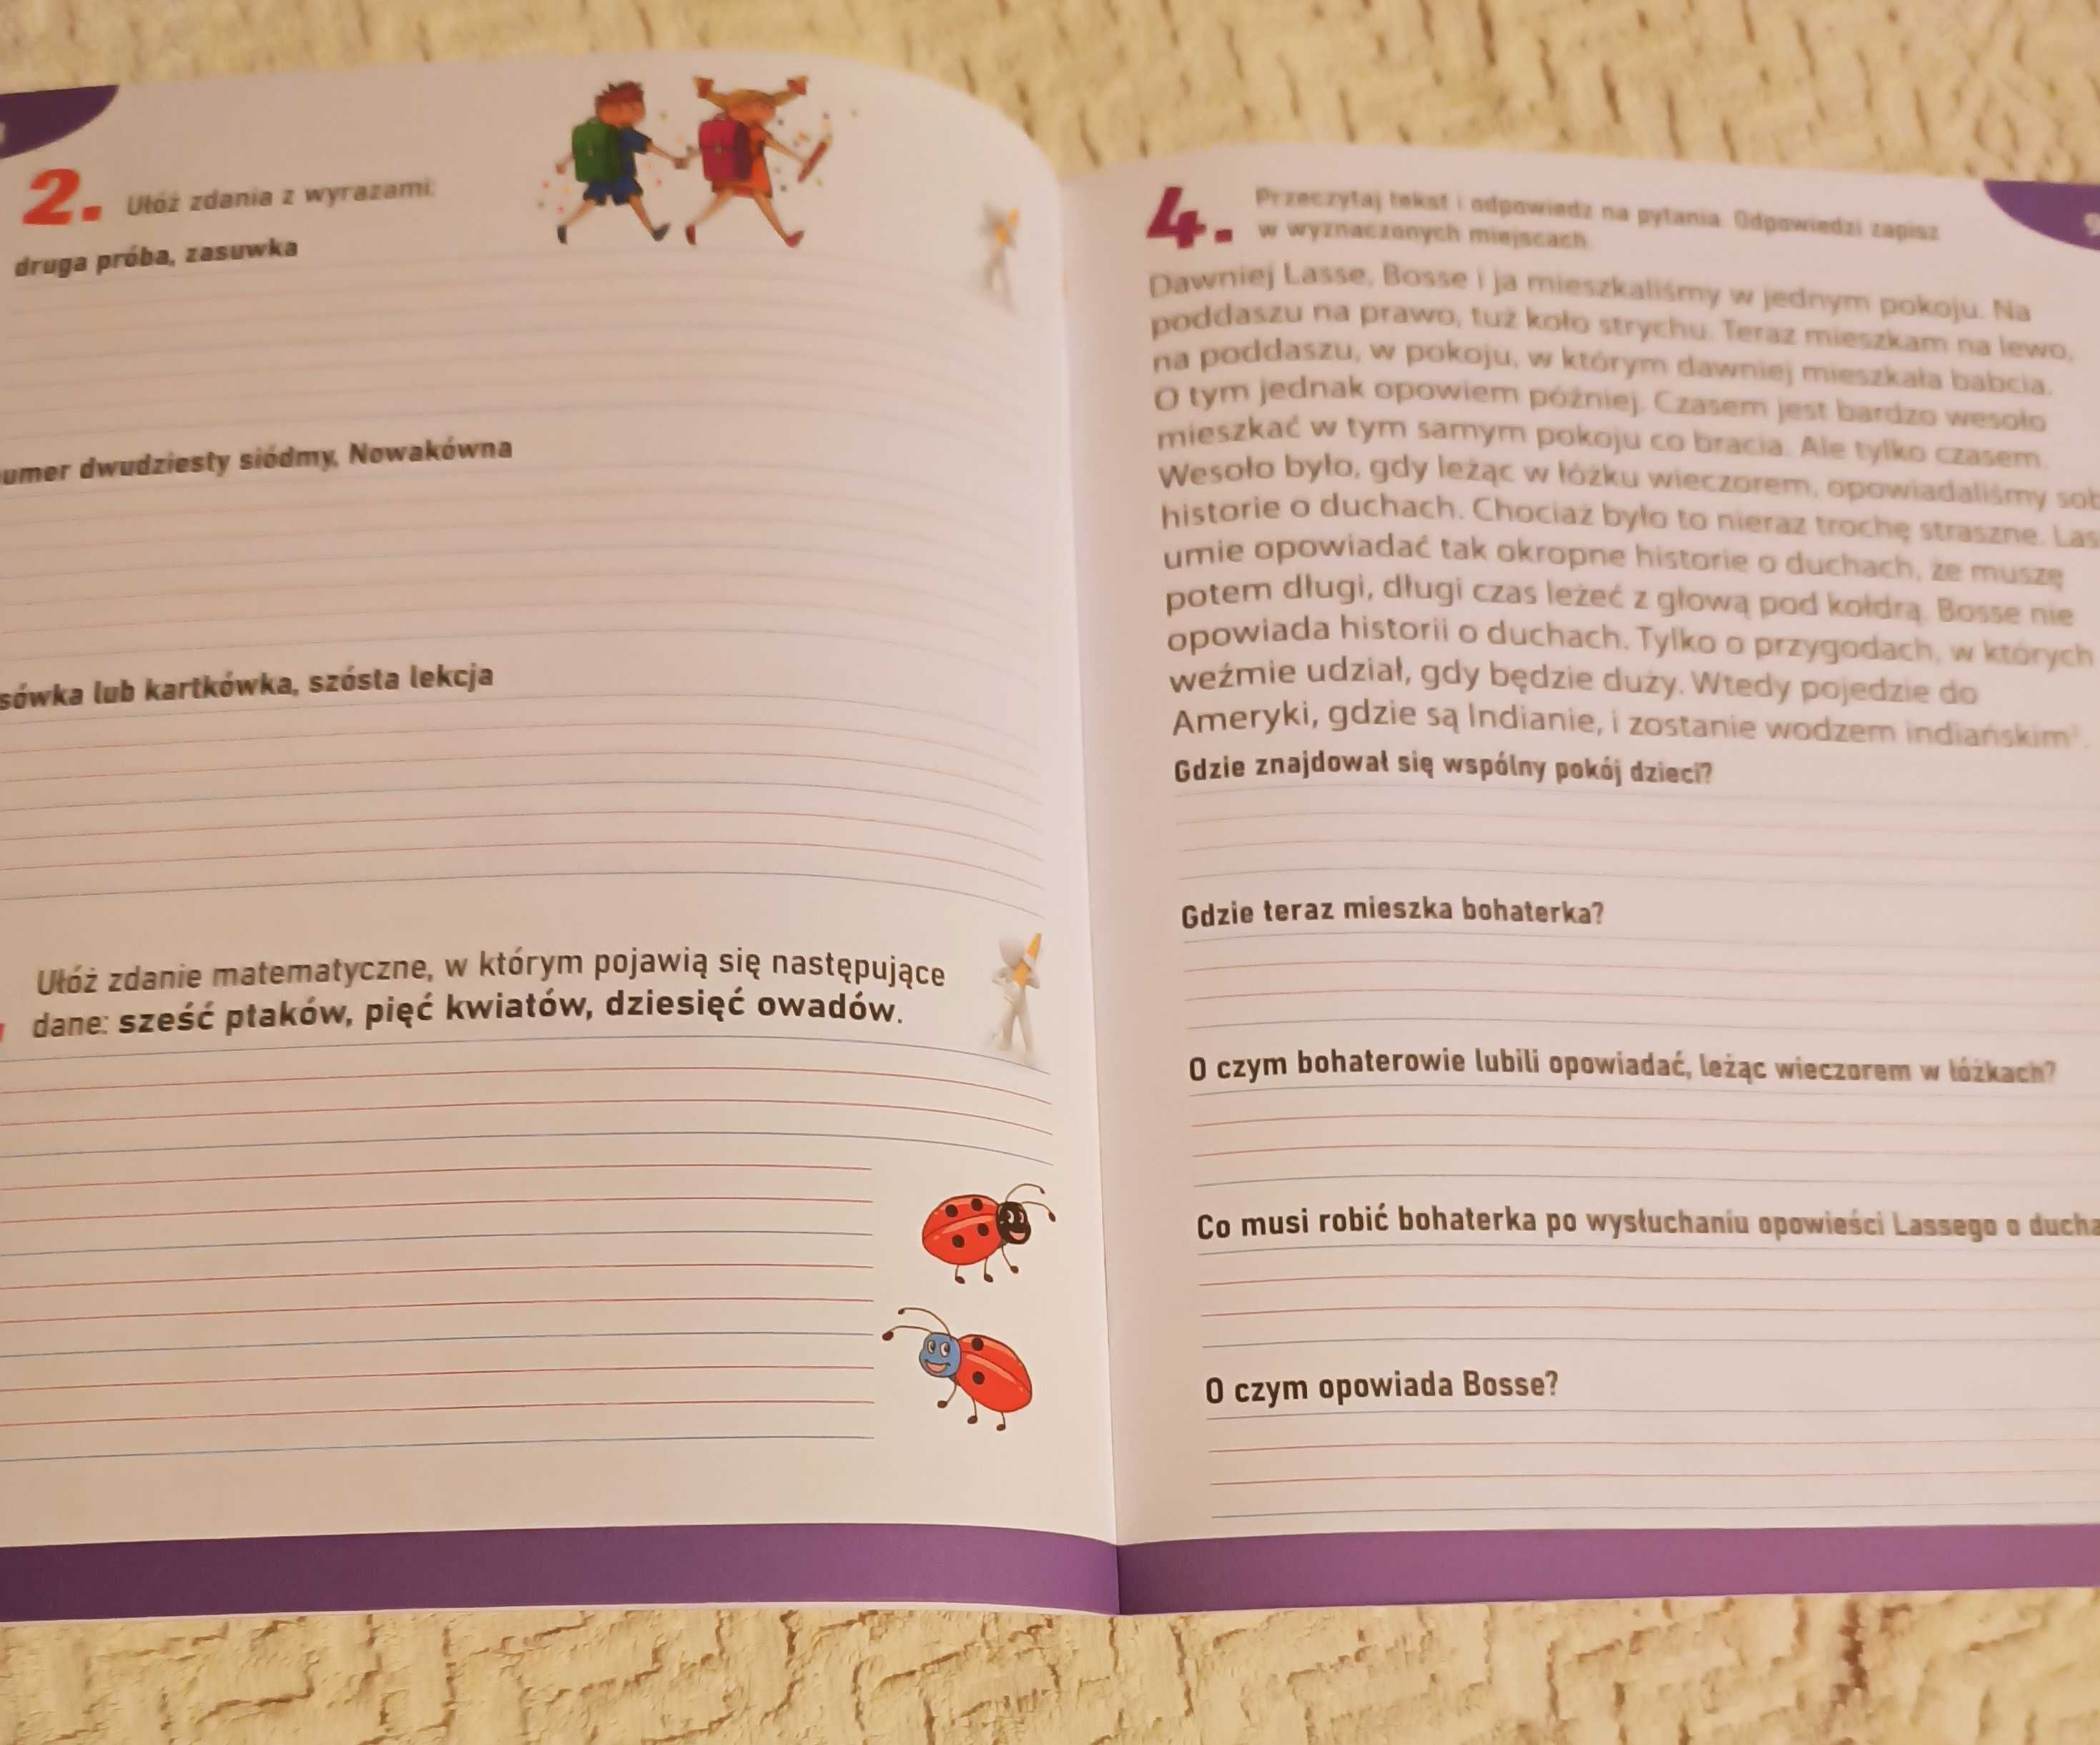 2. Ułóż zdania z wyrazami:
druga próba, zasuwka
umer dwudziesty siódmy, Nowakówna
sówka lub kartkówka, szósta lekcja
Ułóż zdanie matematyczne, w którym pojawią się następujące
dane: sześć ptaków, pięć kwiatów, dziesięć owadów.
4. Przeczytaj tekst i odpowiedz na pytania. Odpowiedzi zapisz
w wyznaczonych miejscach.
Dawniej Lasse, Bosse i ja mieszkaliśmy w jednym pokoju. Na
poddaszu na prawo, tuż koło strychu. Teraz mieszkam na lewo,
na poddaszu, w pokoju, w którym dawniej mieszkała babcia.
O tym jednak opowiem później. Czasem jest bardzo wesoło
mieszkać w tym samym pokoju co bracia. Ale tylko czasem.
Wesoło było, gdy leżąc w łóżku wieczorem, opowiadaliśmy sob
historie o duchach. Chociaż było to nieraz trochę straszne. Las
umie opowiadać tak okropne historie o duchach, że muszę
potem długi, długi czas leżeć z głową pod kołdrą. Bosse nie
opowiada historii o duchach. Tylko o przygodach, w których
weźmie udział, gdy będzie duży. Wtedy pojedzie do
Ameryki, gdzie są Indianie, i zostanie wodzem indiańskim¹.
Gdzie znajdował się wspólny pokój dzieci?
Gdzie teraz mieszka bohaterka?
O czym bohaterowie lubili opowiadać, leżąc wieczorem w łóżkach?
Co musi robić bohaterka po wysłuchaniu opowieści Lassego o ducha
O czym opowiada Bosse?